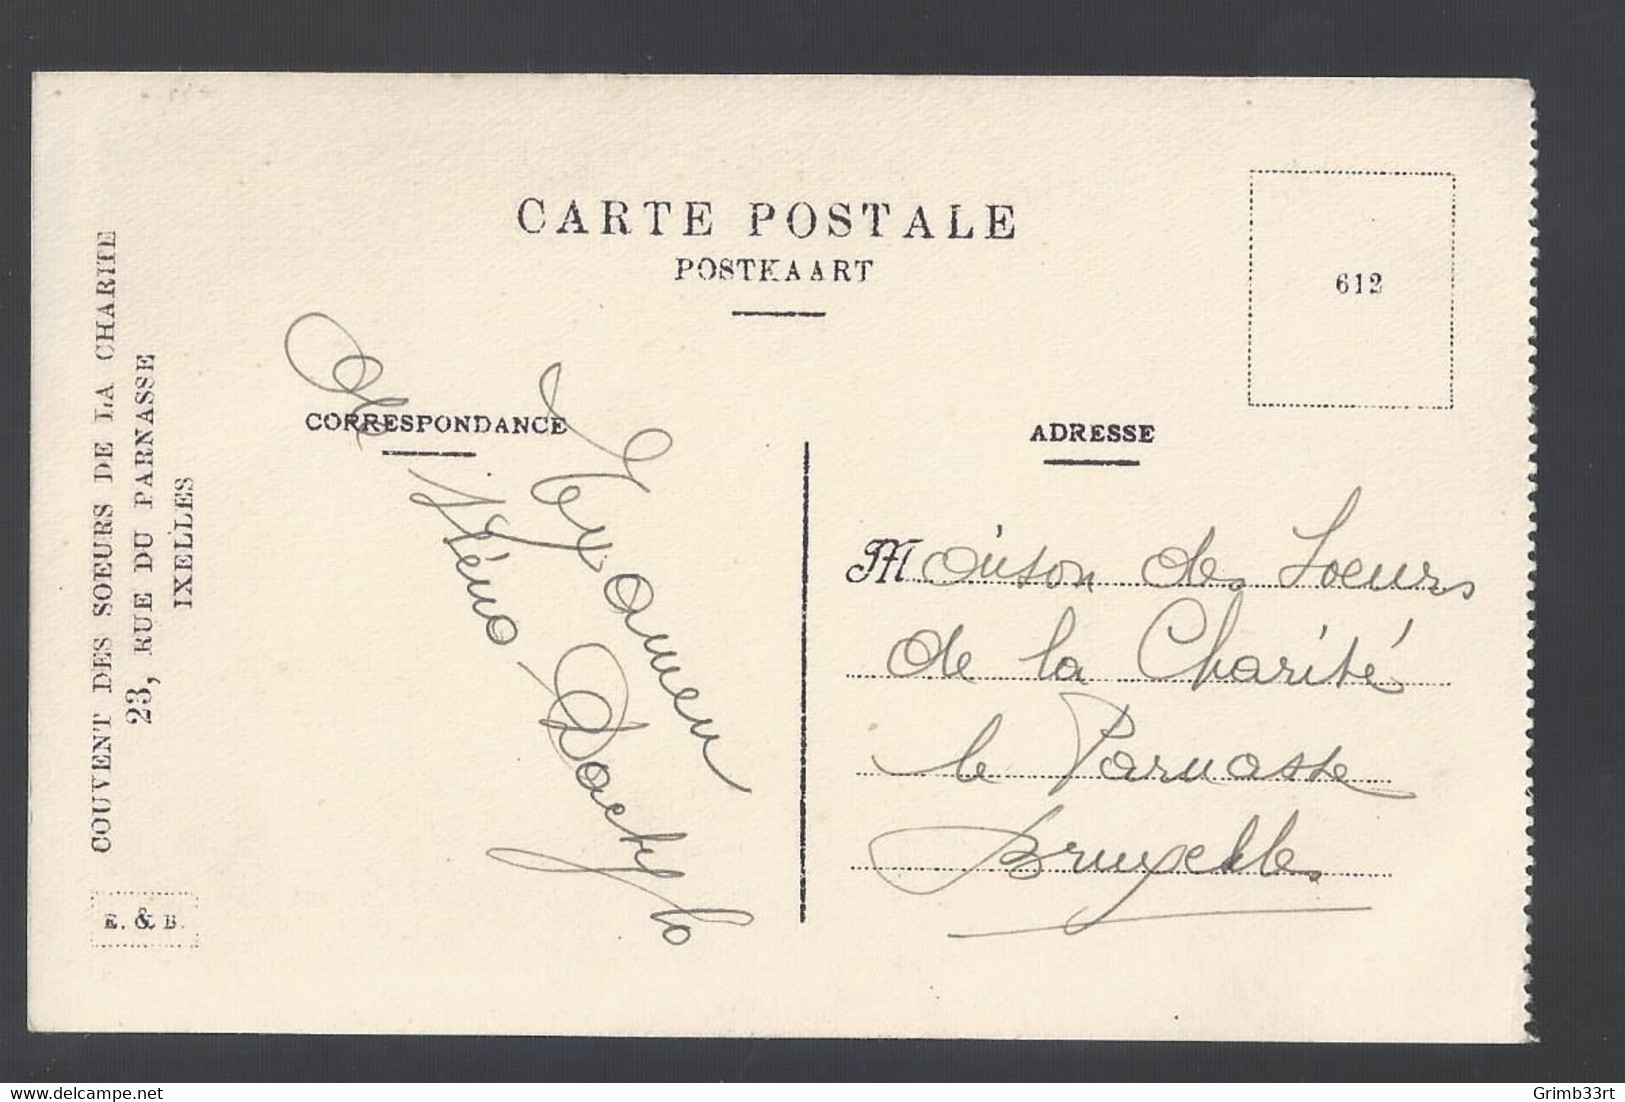 CARTE POSTALE
POSTKAART
612
COUVENT DES SOEURS DE LA CHARITE
23, RUE DU PARNASSE
IXELLES
E. & B.
CORRESPONDANCE
Examen
de Sténo-Dactylo
ADRESSE
Maison des Soeurs
de la Charité
le Parnasse
Bruxelles
delcampe.net
Grimb33rt